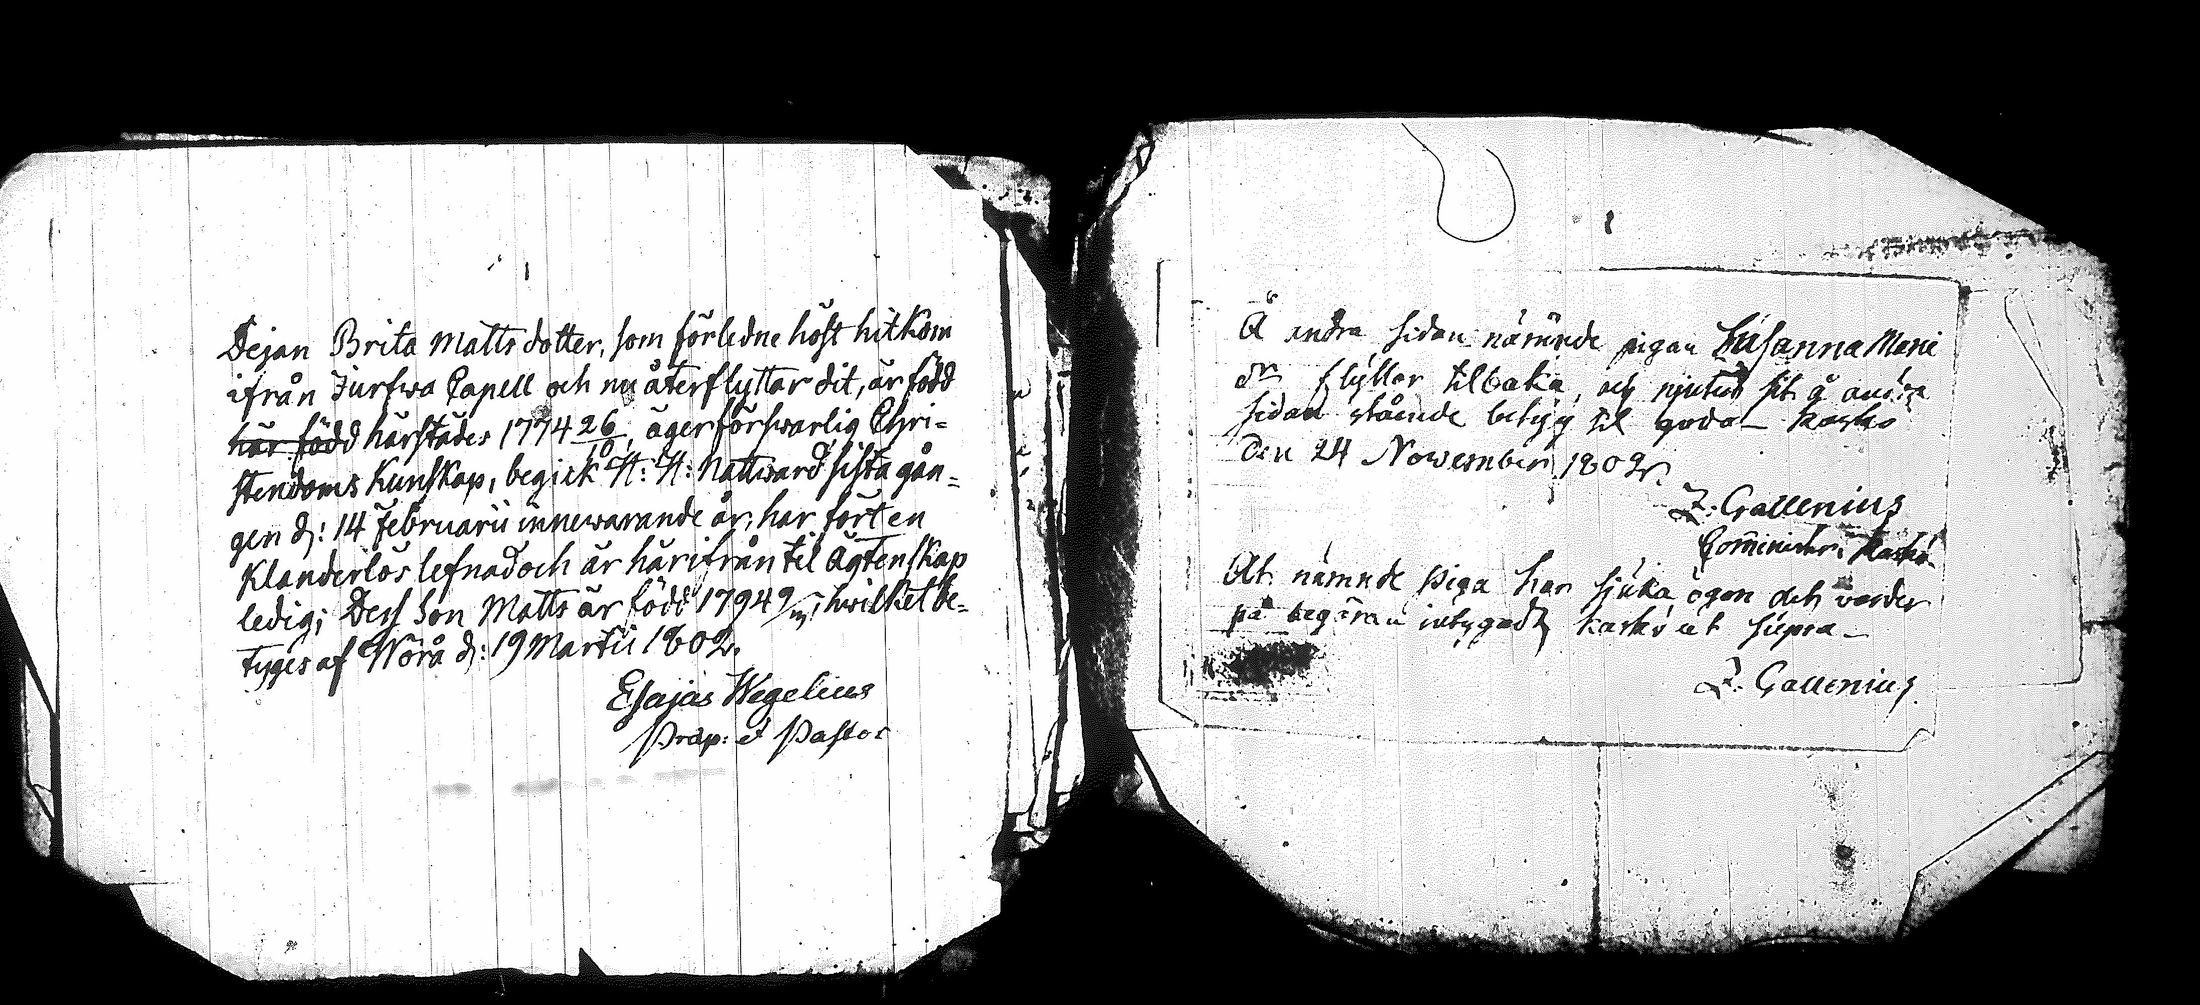 Dejan Brita Matts dotter, som förledne höst hitkom
ifrån Jurfwa Capell och nu återflyttar dit, är född
här född härstädes 1774 26/10, äger förswarlig Chri=
stendoms Kunskap, begick H: H: Nattward sista gån=
gen d: 14 Februarii innewarande år, har fört en
Klanderlös lefnad och är härifrån til Ägtenskap
ledig; Dess Son Matts är född 1794 9/; hwilket be=
tyges af Wörå d: 19 Martii 1802.
Esajas Wegelius
Præp: et Pastor
Å andra sidan nämnde pigan Susanna Marie
dr flyttar tilbaka, och njuter sit å andra
sidan stående betyg til godo _ Kaskö
den 24 November 1802.
Z. Gallenius
Comminister i Kaskö.
At nämnde Piga har sjuka ögon det varder
på begäran intygadt Kaskö ut supra _
Z. Gallenius